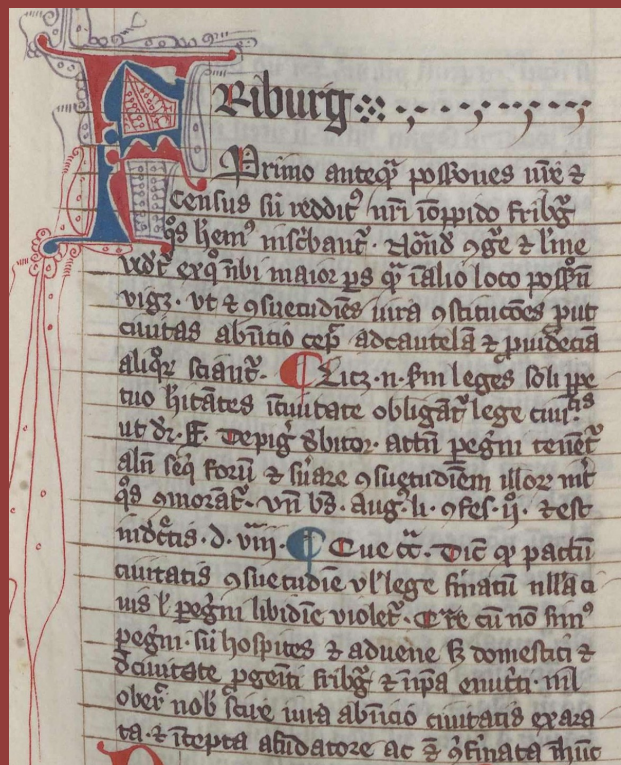 FRiburg
Primo anteqͣ possioues nr̄e ⁊
Census siu reddit9 nr̄i ī oppido friburg̃
qͦs hem9 īscͥbant̃. ꝯg̃e ⁊
vedet̃ ex qͦ nͥbi maior ps qͣ ī alio loco possn̄
vigꝫ. vt ⁊ ꝯsuetudīes iura ꝯstitucōes put
ciuitas ab īicio cep̃ ad cautelā ⁊ puidēciā
aliqͦꝝ sciant̃. ¶ Licꝫ .n. sm leges soli ꝑpe
tuo hītātes ī ciuitate obligāt̃ lege ciuitͣtis
ut dr̃. ff. De pig̃ debitor. attn̄ pegͥni tenēt̃
aln̄ seqͥ forū ⁊ s̃uare ꝯsuetudīem illoꝝ īt̃
qͦs ꝯmorāt̃. vn̄ bs. Aug9. li. ꝯfes. ij. ⁊ est
in dc̃tis. d. viij. ¶ Que ꝯͣ. Dic̃ ꝙ pactū
ciuitatis ꝯsuetudīe vl' lege firmatū nll̃a ci
uis l' pegͥni libidīe violet̃. cū nō sim9
pegͥni. siu hospites ⁊ aduene sꝫ domestici ⁊
de ciuitate ꝓgeniti fribg̃ ⁊ ī ip̃a enutͥti. nil
ober̃ nob̃ scire iura ab īicio ciuitatis exara
ta. ⁊ īcepta a fūdatore ac ꝯfirmata